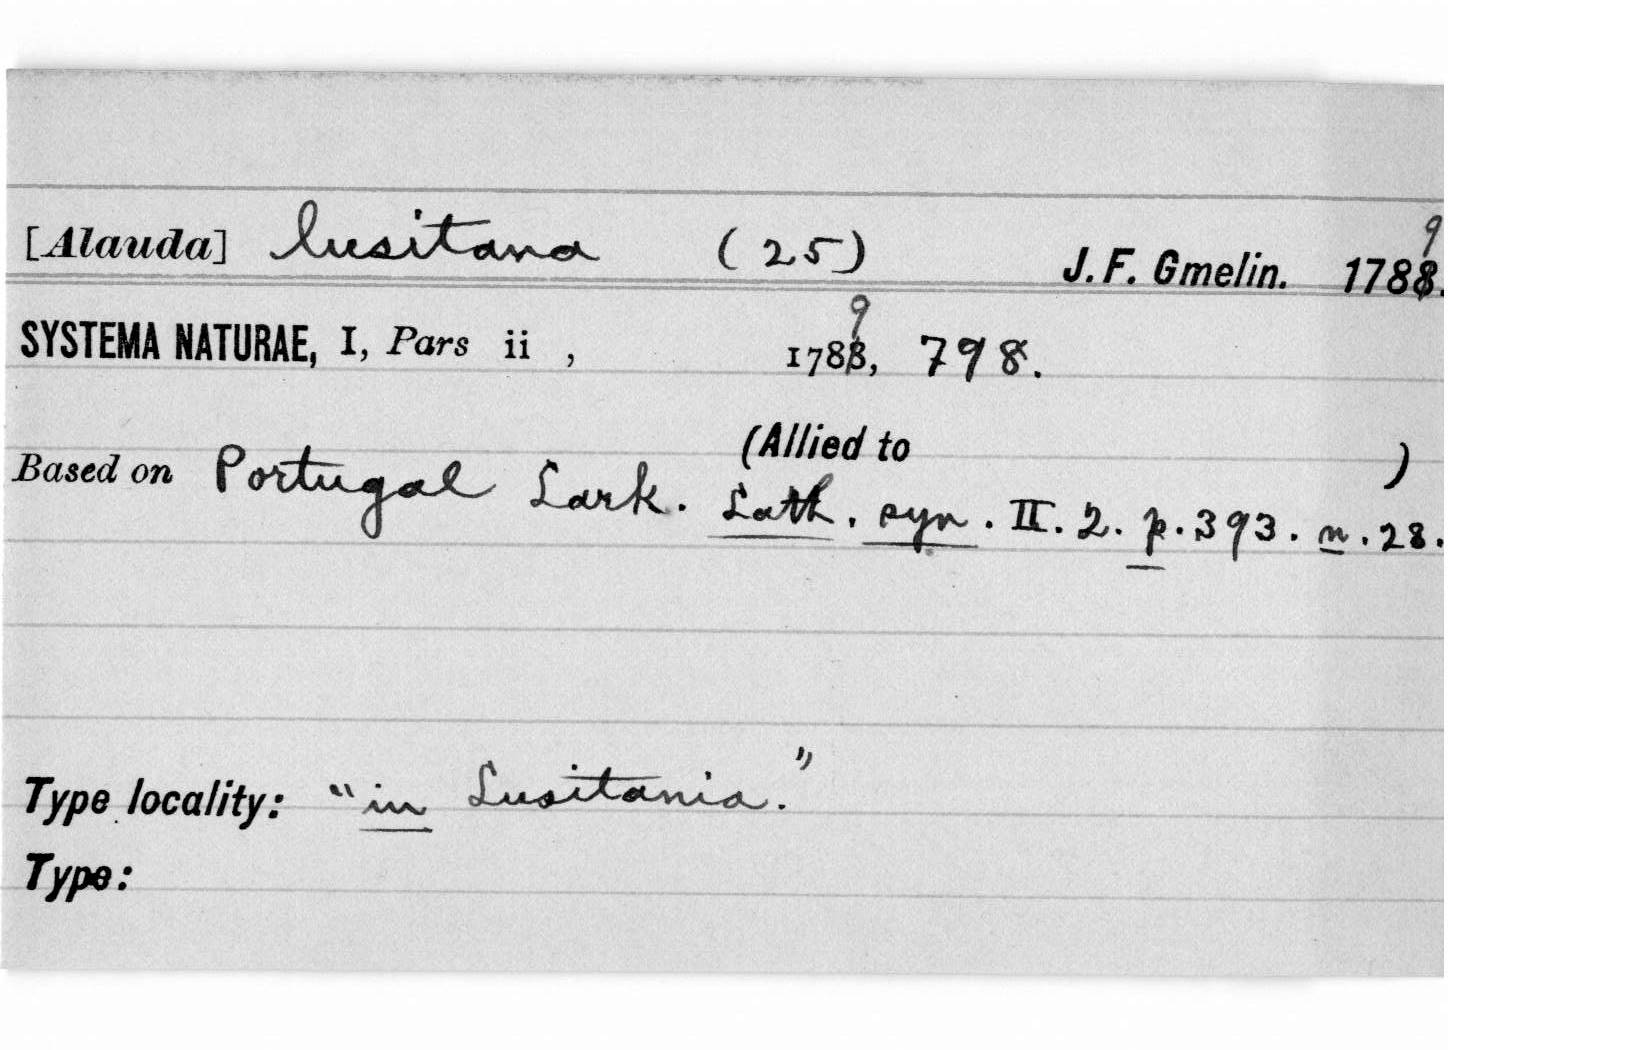 [Alauda] lusitana (25) J. F. Gmelin. 1789.
SYSTEMA NATURAE, I, Pars ii , 1789, 798.
(Allied to )
Based on Portugal Lark. Lath. syn. II. 2. p. 393. n. 28.
Type locality: "in Lusitania."
Type: